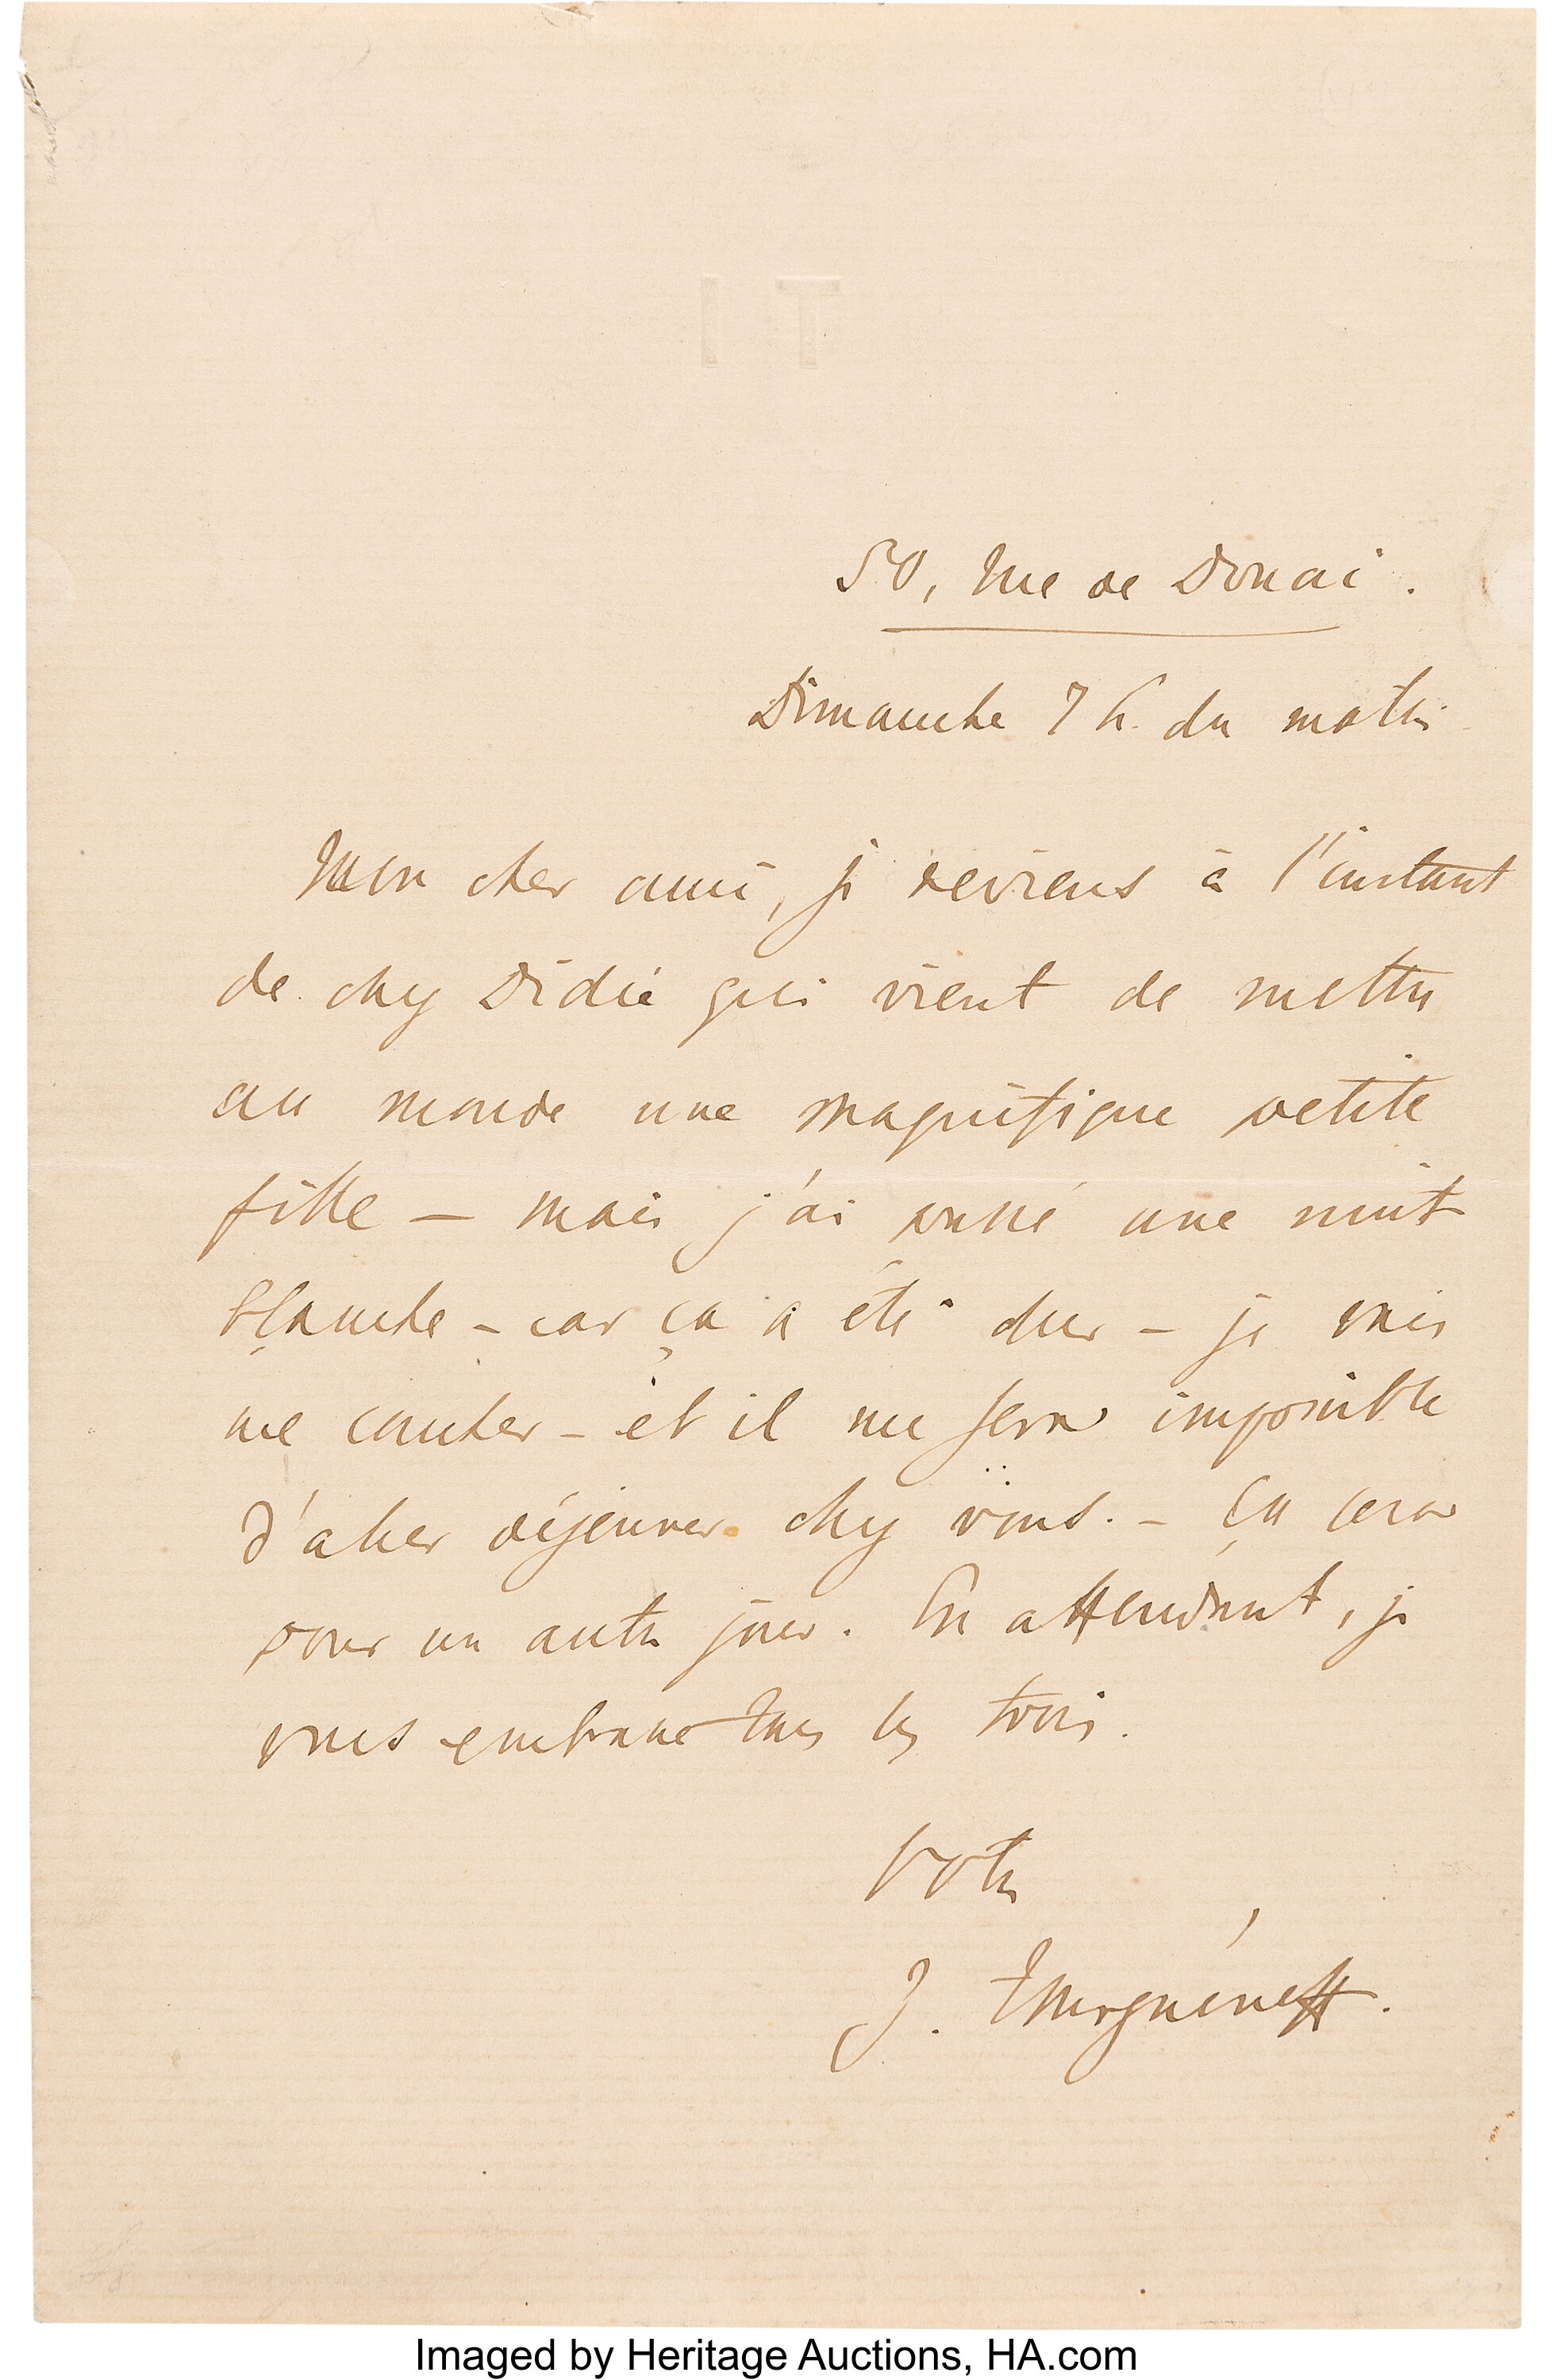 I T
50, Rue de Douai.
Dimanche 7 h. du matin
Mon cher ami, je reviens à l'instant
de chez Didie qui vient de mettre
au monde une magnifique petite
fille — mais j'ai passé une nuit
blanche – car ça a été dur – je vais
me coucher – et il me sera impossible
d'aller déjeuner chez vous. – Ça sera
pour un autre jour. En attendant, je
vous embrasse tous les trois.
Votre
J. Tourguéneff.
Imaged by Heritage Auctions, HA.com